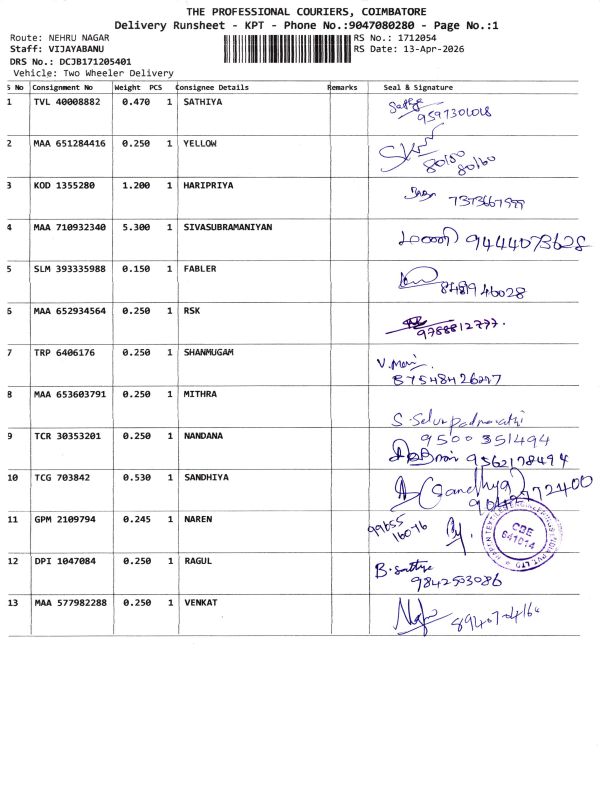 THE PROFESSIONAL COURIERS, COIMBATORE
Delivery Runsheet - KPT - Phone No.:9047080280 - Page No.:1
Route: NEHRU NAGAR RS No.: 1712054
Staff: VIJAYABANU RS Date: 13-Apr-2026
DRS No.: DCJB171205401
Vehicle: Two Wheeler Delivery
S No Consignment No Weight PCS Consignee Details Remarks Seal & Signature
1 TVL 40008882 0.470 1 SATHIYA
9597301018
2 MAA 651284416 0.250 1 YELLOW
80150
80160
3 KOD 1355280 1.200 1 HARIPRIYA
4 MAA 710932340 5.300 1 SIVASUBRAMANIYAN
9444073628
5 SLM 393335988 0.150 1 FABLER
6 MAA 652934564 0.250 1 RSK
9788812777.
7 TRP 6406176 0.250 1 SHANMUGAM
V. Mani
8 MAA 653603791 0.250 1 MITHRA
9500351494
9 TCR 30353201 0.250 1 NANDANA
9562178494
10 TCG 703842 0.530 1 SANDHIYA
(Sandhya)
11 GPM 2109794 0.245 1 NAREN
99655
16076
CBE
641014
12 DPI 1047084 0.250 1 RAGUL
9842503086
13 MAA 577982288 0.250 1 VENKAT